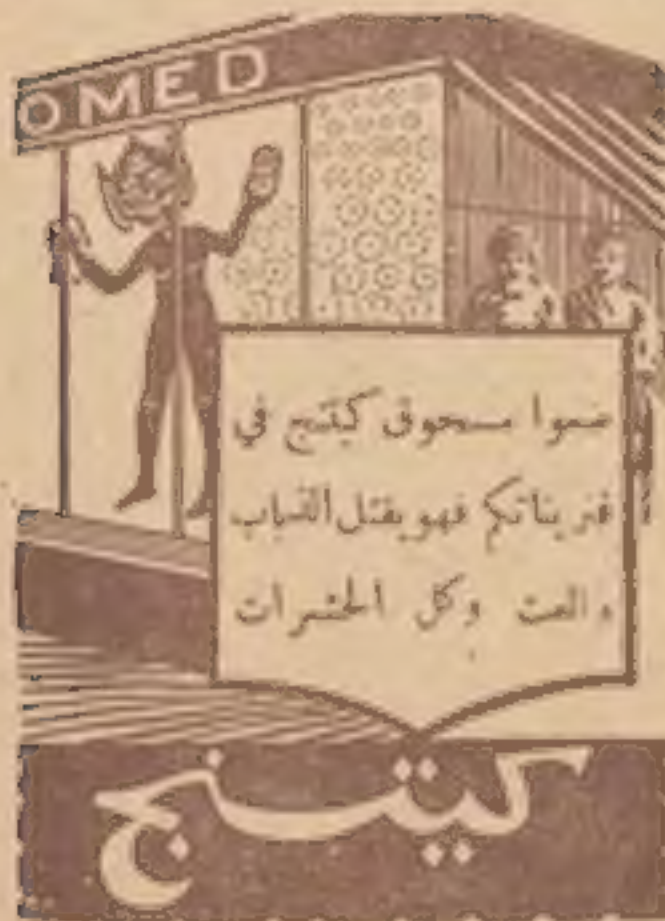 OMED
ضعوا مسحوق كيتنج في
فتريناتكم فهو يقتل الذباب
والعت وكل الحشرات
كيتنج